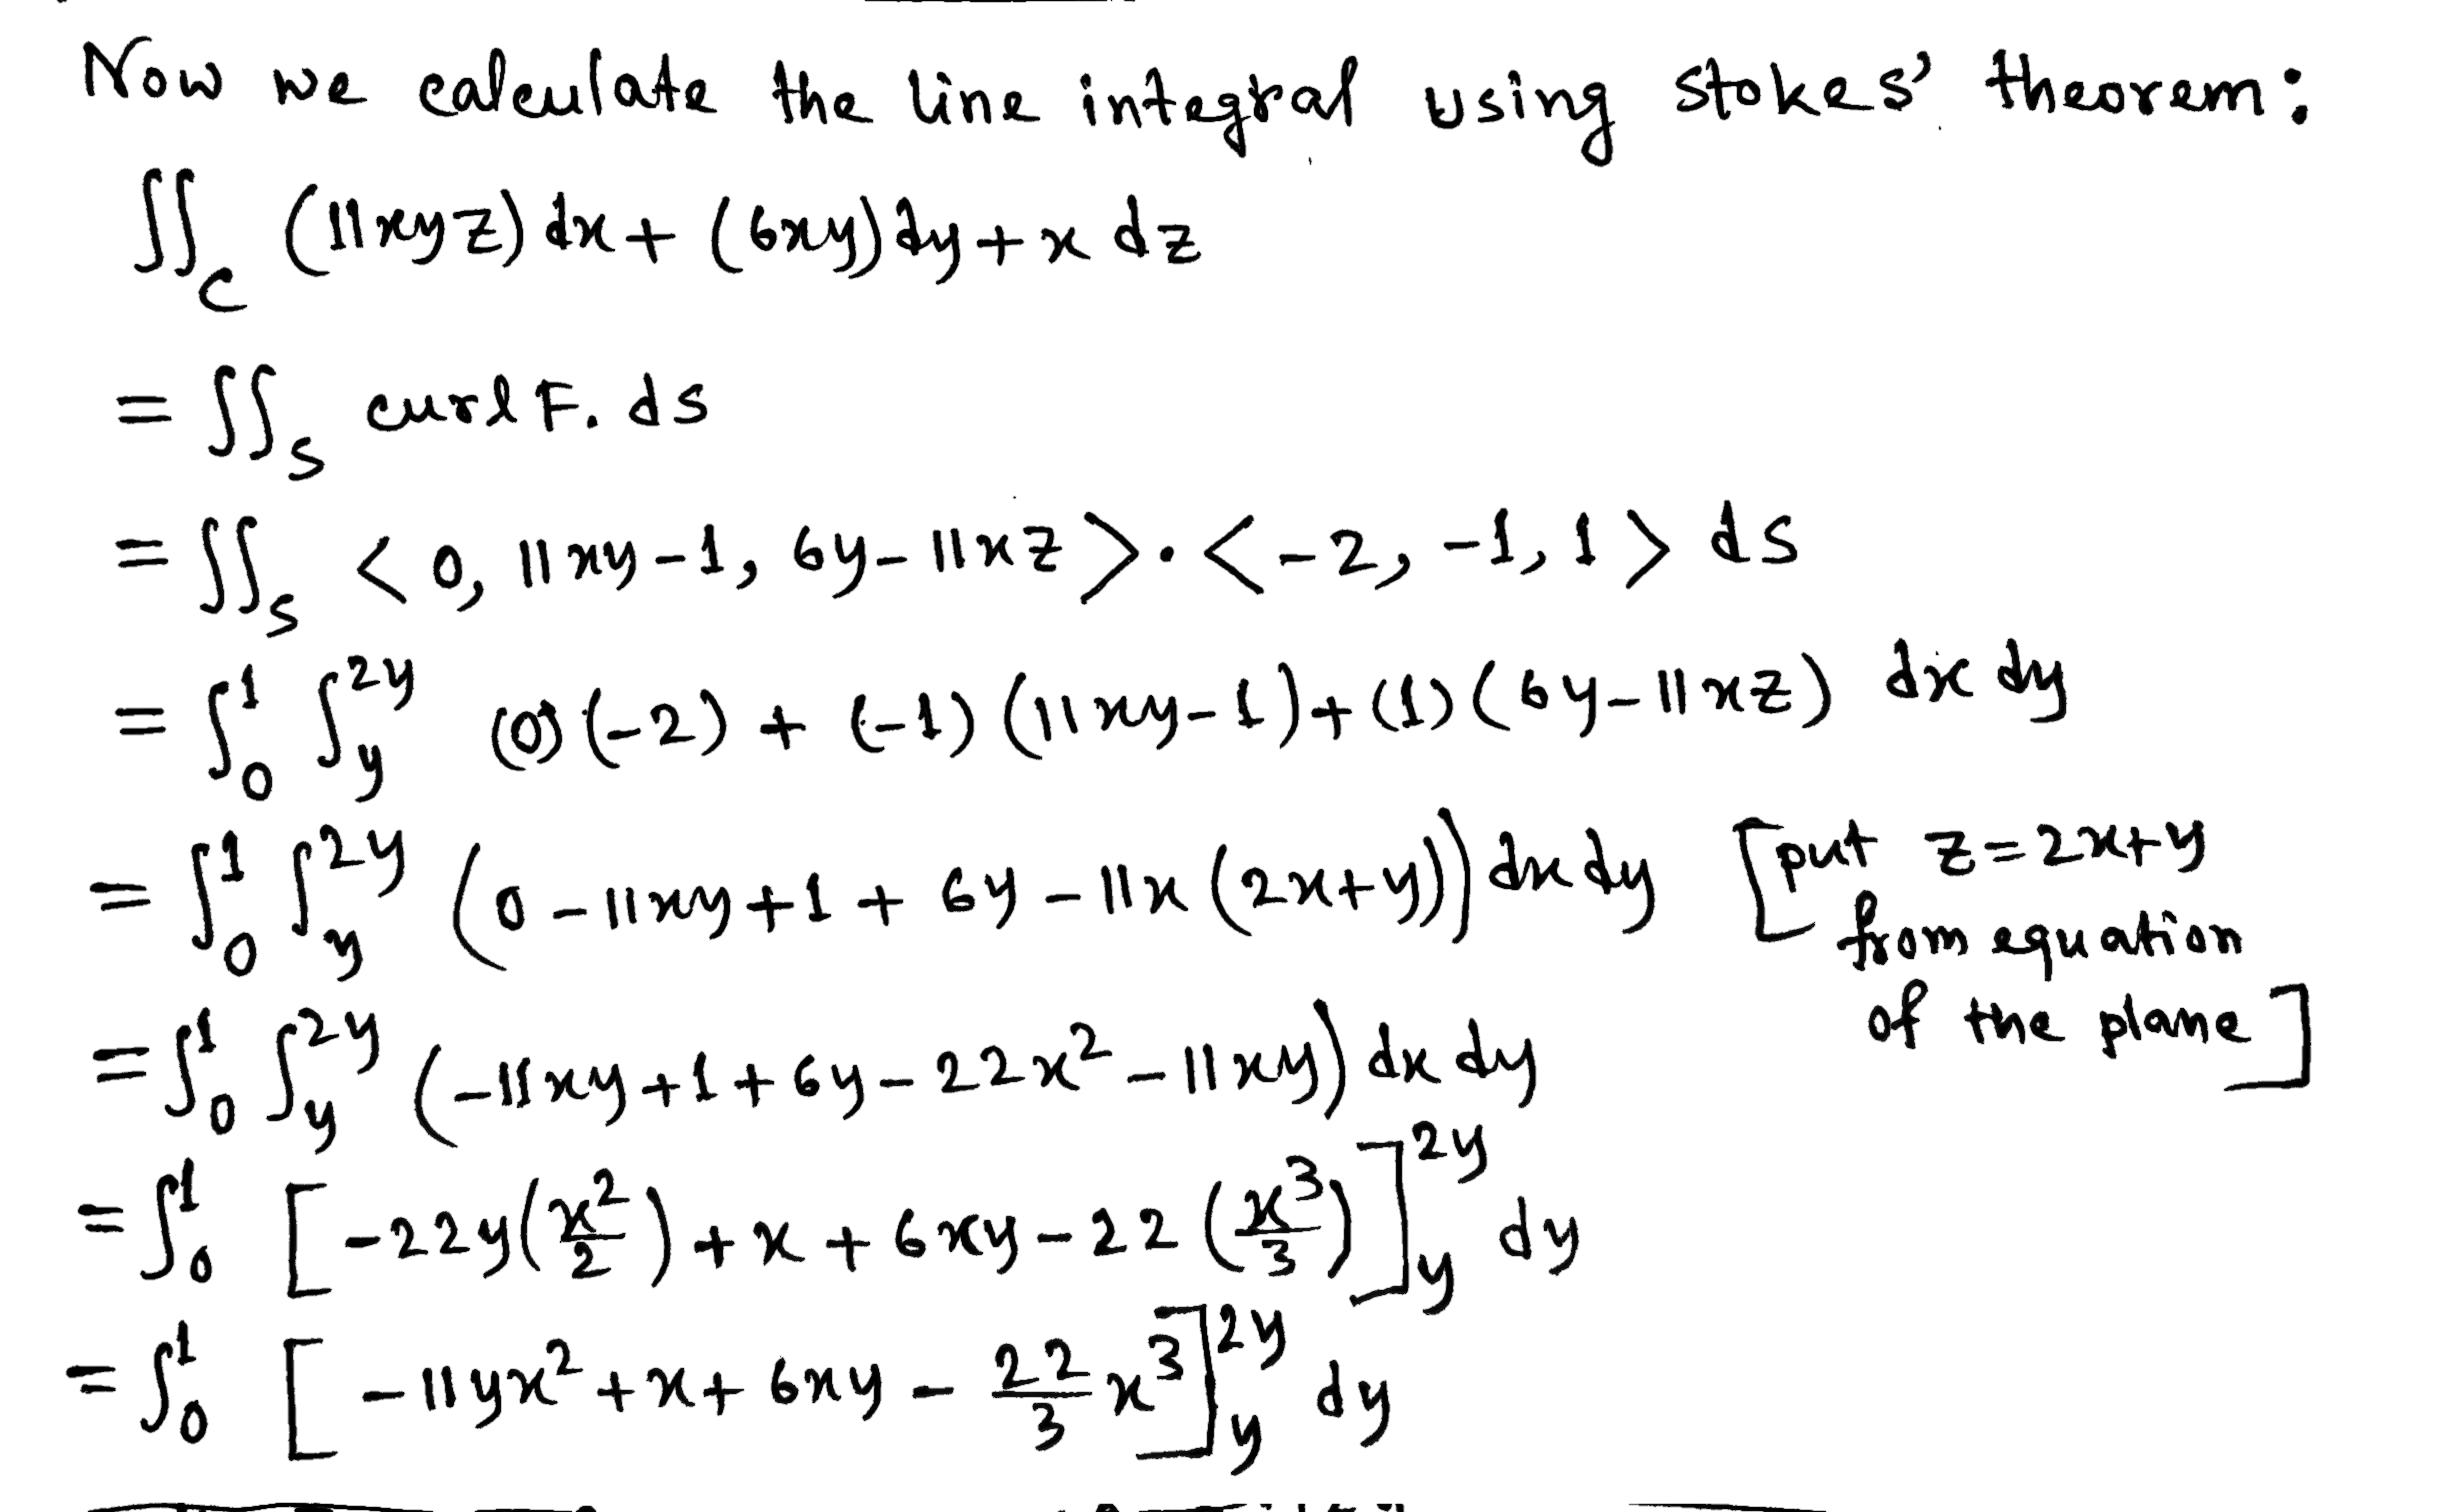 Now we calculate the line integral using stokes' theorem:
∬_C (11xyz)dx + (6xy)dy + x dz
= ∬_S curl F. ds
= ∬_S <0, 11xy-1, 6y-11xz>.<-2, -1, 1> ds
= ∫_0^1 ∫_y^{2y} (0)(-2) + (-1)(11xy-1)+(1)(6y-11xz) dx dy
= ∫_0^1 ∫_y^{2y} (0-11xy+1+6y-11x(2x+y))dx dy [put z=2x+y
from equation
of the plane]
= ∫_0^1 ∫_y^{2y} (-11xy+1+6y-22x^2-11xy) dx dy
= ∫_0^1 [-22y(x^2/2)+x+6xy-22(x^3/3)]_y^{2y} dy
= ∫_0^1 [-11yx^2+x+6xy-22/3 x^3]_y^{2y} dy